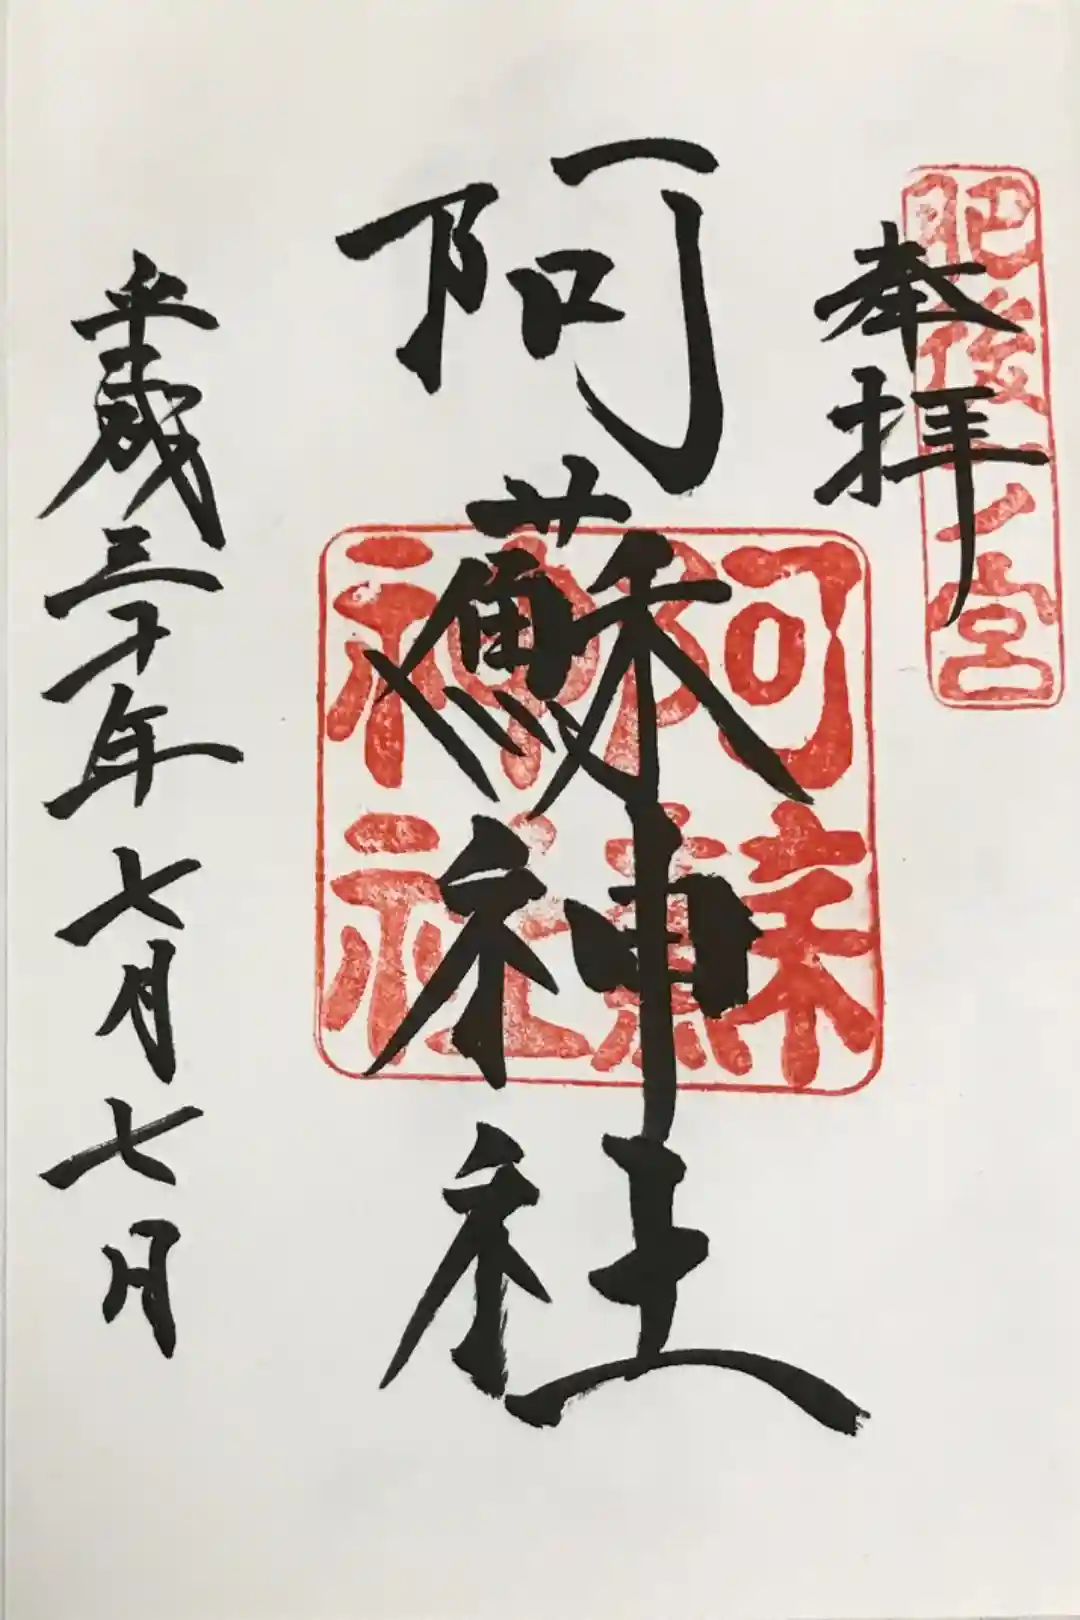 奉拝
肥後一ノ宮
阿蘇神社
阿蘇
神社
平成三十年七月七日